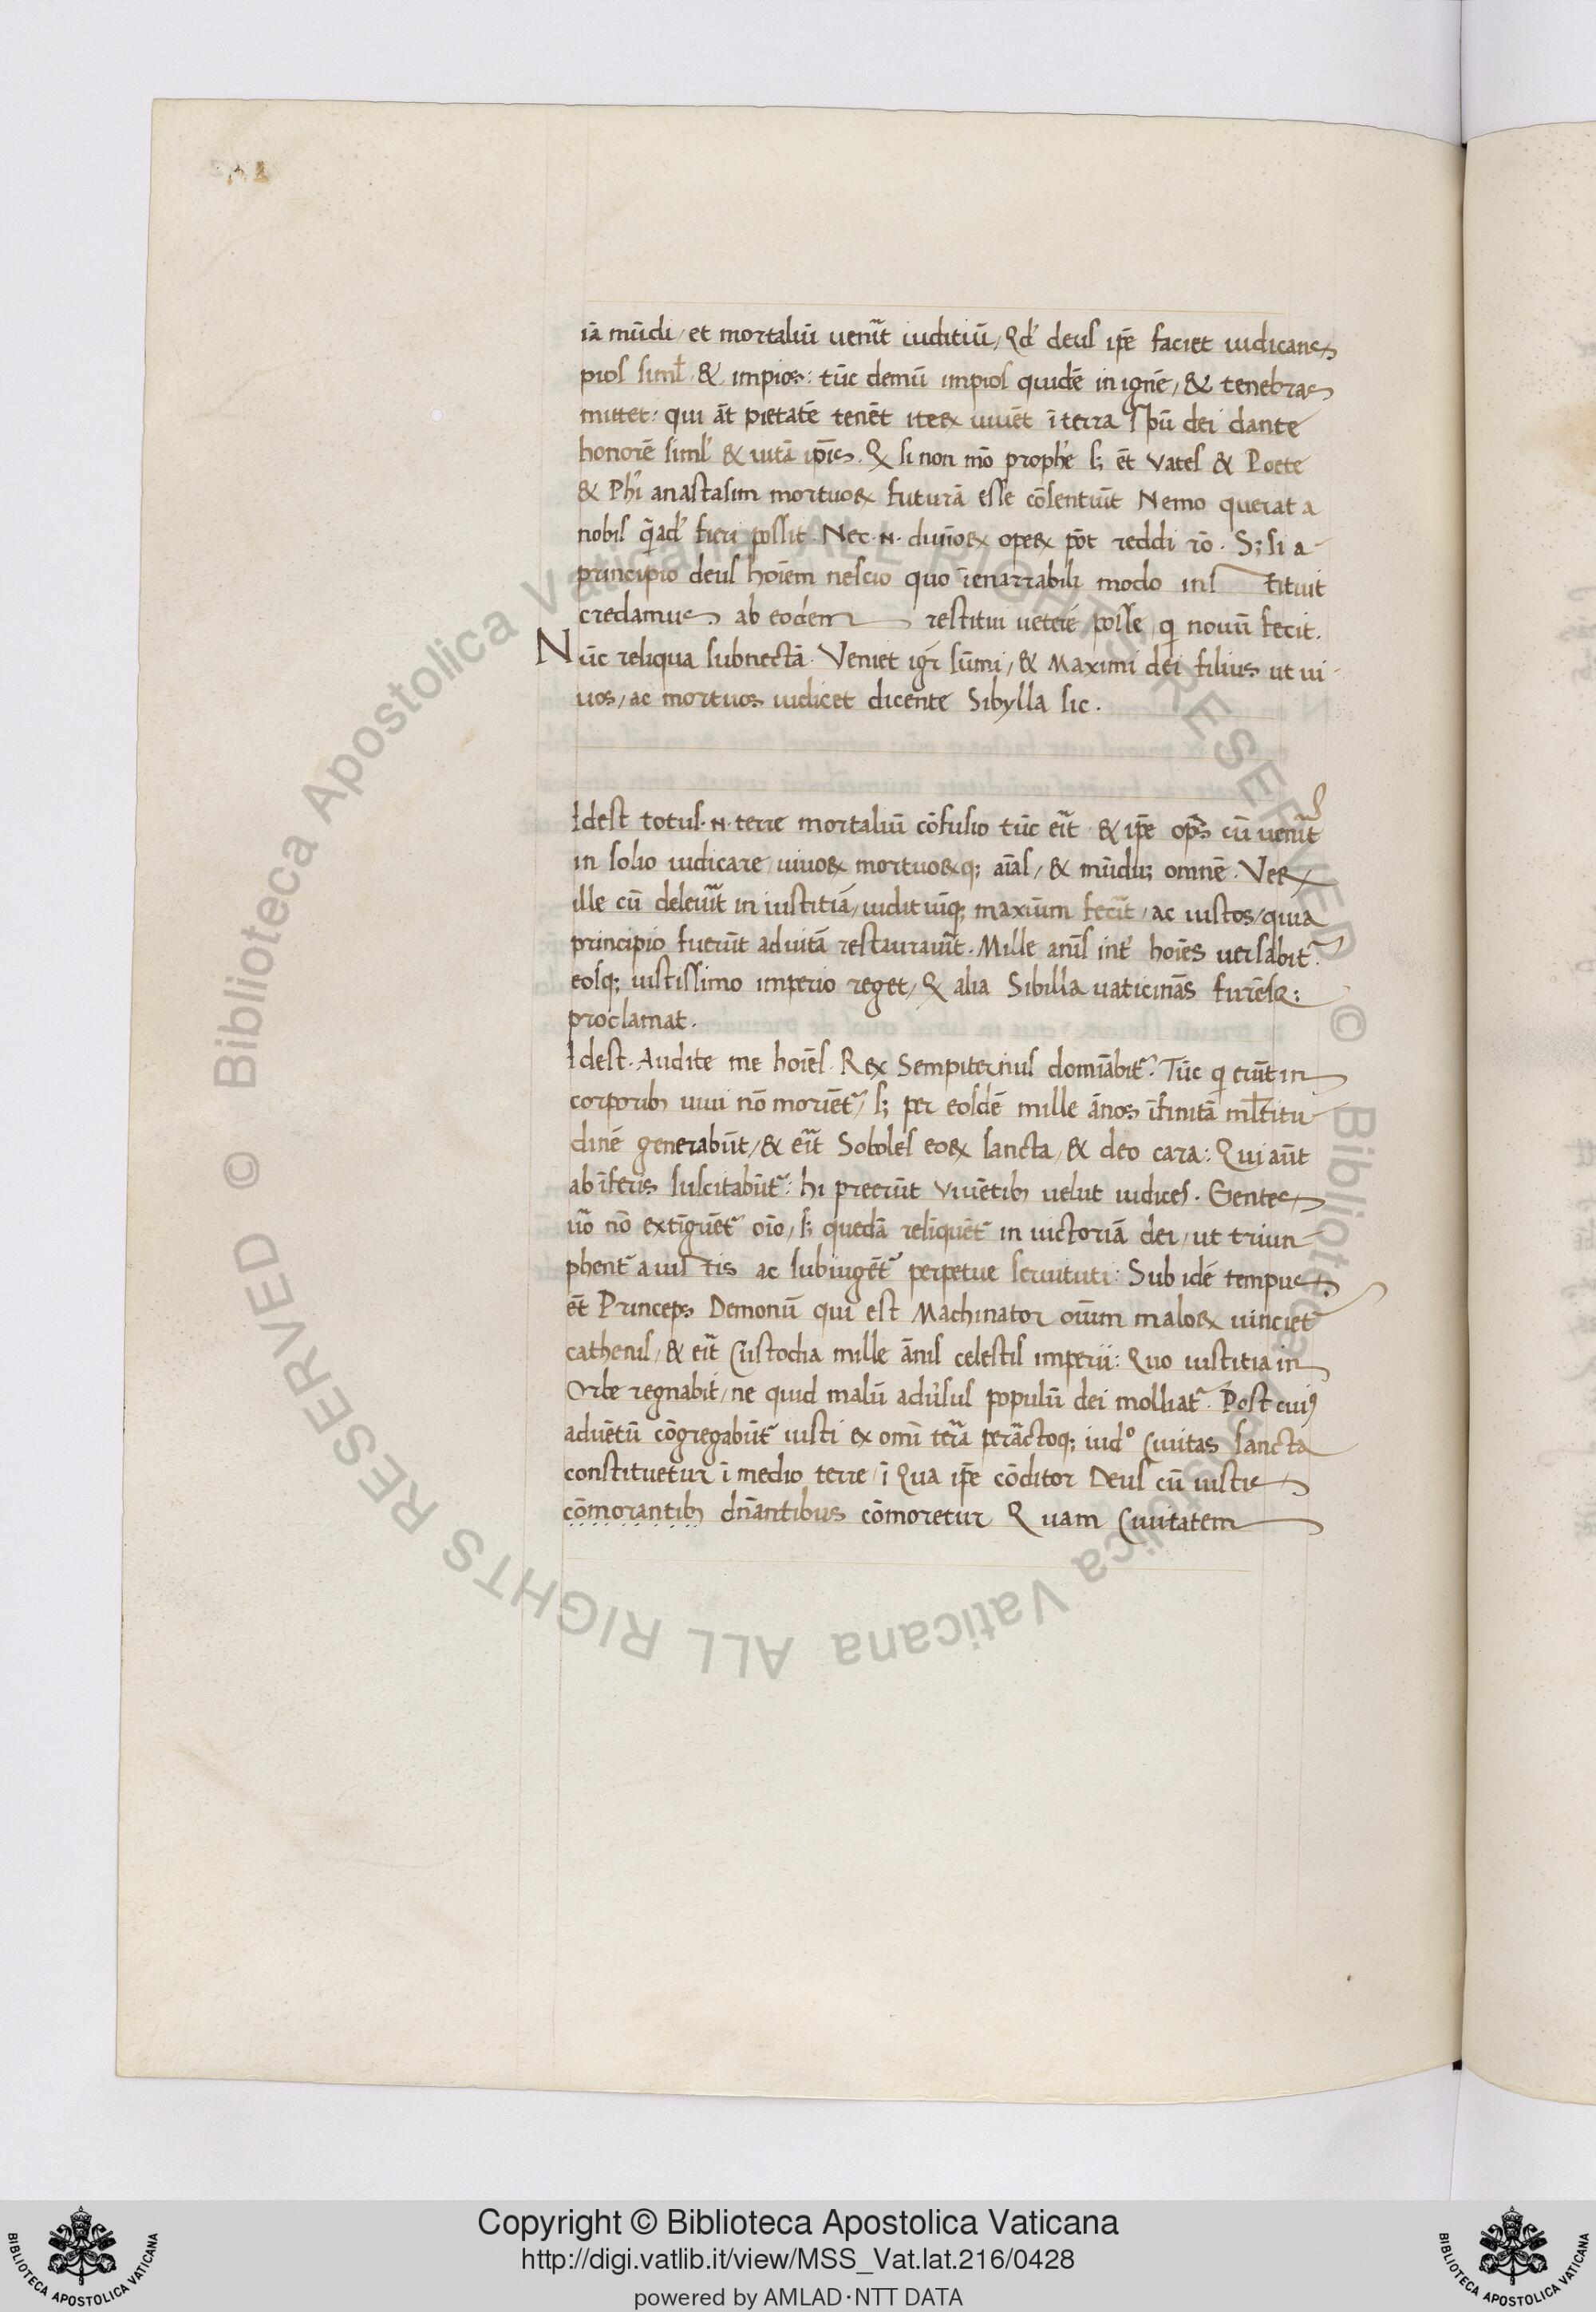 iā mūdi / et mortaliū uenīt iuditiū / Qd' deus ip̄e faciet iudicans
pios siml' & impios: tūc demū impios quidē in ignē / & tenebras
mittet: qui āt pietatē tenēt iteꝝ uiuēt ī terra spū dei dante
honorē siml' & uitā ip̄is. Q si non mō prophe s; ēt vates & Poete
& Phi anastasim mortuoꝝ futurā esse cōsentiūt Nemo querat a
nobis q̄ad' fieri possit. Nec .N. diuinoꝝ opeꝝ pōt reddi rō. S; si a
principio deus hoīem nescio quo īenarrabili modo ins tituit
credamus ab eodem restitui ueterē posse q nouū fecit.
Nūc reliqua subnectā. Veniet igr sūmi / & Maximi dei filius ut ui
uos / ac mortuos iudicet dicente Sibylla sic.
Idest totus .N. terre mortaliū cōfusio tūc eīt & ip̄e op̄s cū uenīt
in solio iudicare uiuoꝝ mortuoꝝq; aīas / & mūdu; omnē. Veꝝ
ille cū deleuīt in iustitiā / iuditiūq; maxium fecīt / ac iustos / quia
principio fuerūt ad uitā restaurauīt. Mille anīs int' hoīes uersabit
eosq; iustissimo imperio reget / Q alia Sibilla uaticināns furēsq:
proclamat.
Idest. Audite me hoīes. Rex Sempiternus domīabit. Tūc q erūt in
corporib uiui nō moriēt / s; per eosdē mille ānos īfinitā ml̄titu
dinē generabūt / & eīt Soboles eoꝝ sancta / & deo cara: Qui aūt
ab īferis suscitabūt: hi preerūt viuētib uelut iudices. Gentes
uō nō extīguēt oīo / s; quedā relīquēt in uictoriā dei / ut triun
phent a ius tis ac subiugēt perpetue seruituti: Sub idē tempus
ēt Princeps Demonū qui est Machinator oīum maloꝝ uinciet
cathenis / & eīt Custodia mille ānis celestis imperii: Quo iustitia in
Orbe regnabit / ne quid malū adu'sus populū dei molliat. Post cuiꝰ
aduētū cōgregabūt iusti ex omī terra peractoq; iudº Ciuitas sancta
constituetur ī medio terre / ī Qua ip̄e cōditor Deus cū iustis
cōmorantib dn̄antibus cōmoretur Quam Ciuitatem
© Biblioteca Apostolica Vaticana ALL RIGHTS RESERVED © Biblioteca Apostolica Vaticana ALL RIGHTS RESERVED
Copyright © Biblioteca Apostolica Vaticana
http://digi.vatlib.it/view/MSS_Vat.lat.216/0428
powered by AMLAD·NTT DATA
BIBLIOTECA APOSTOLICA VATICANA
BIBLIOTECA APOSTOLICA VATICANA